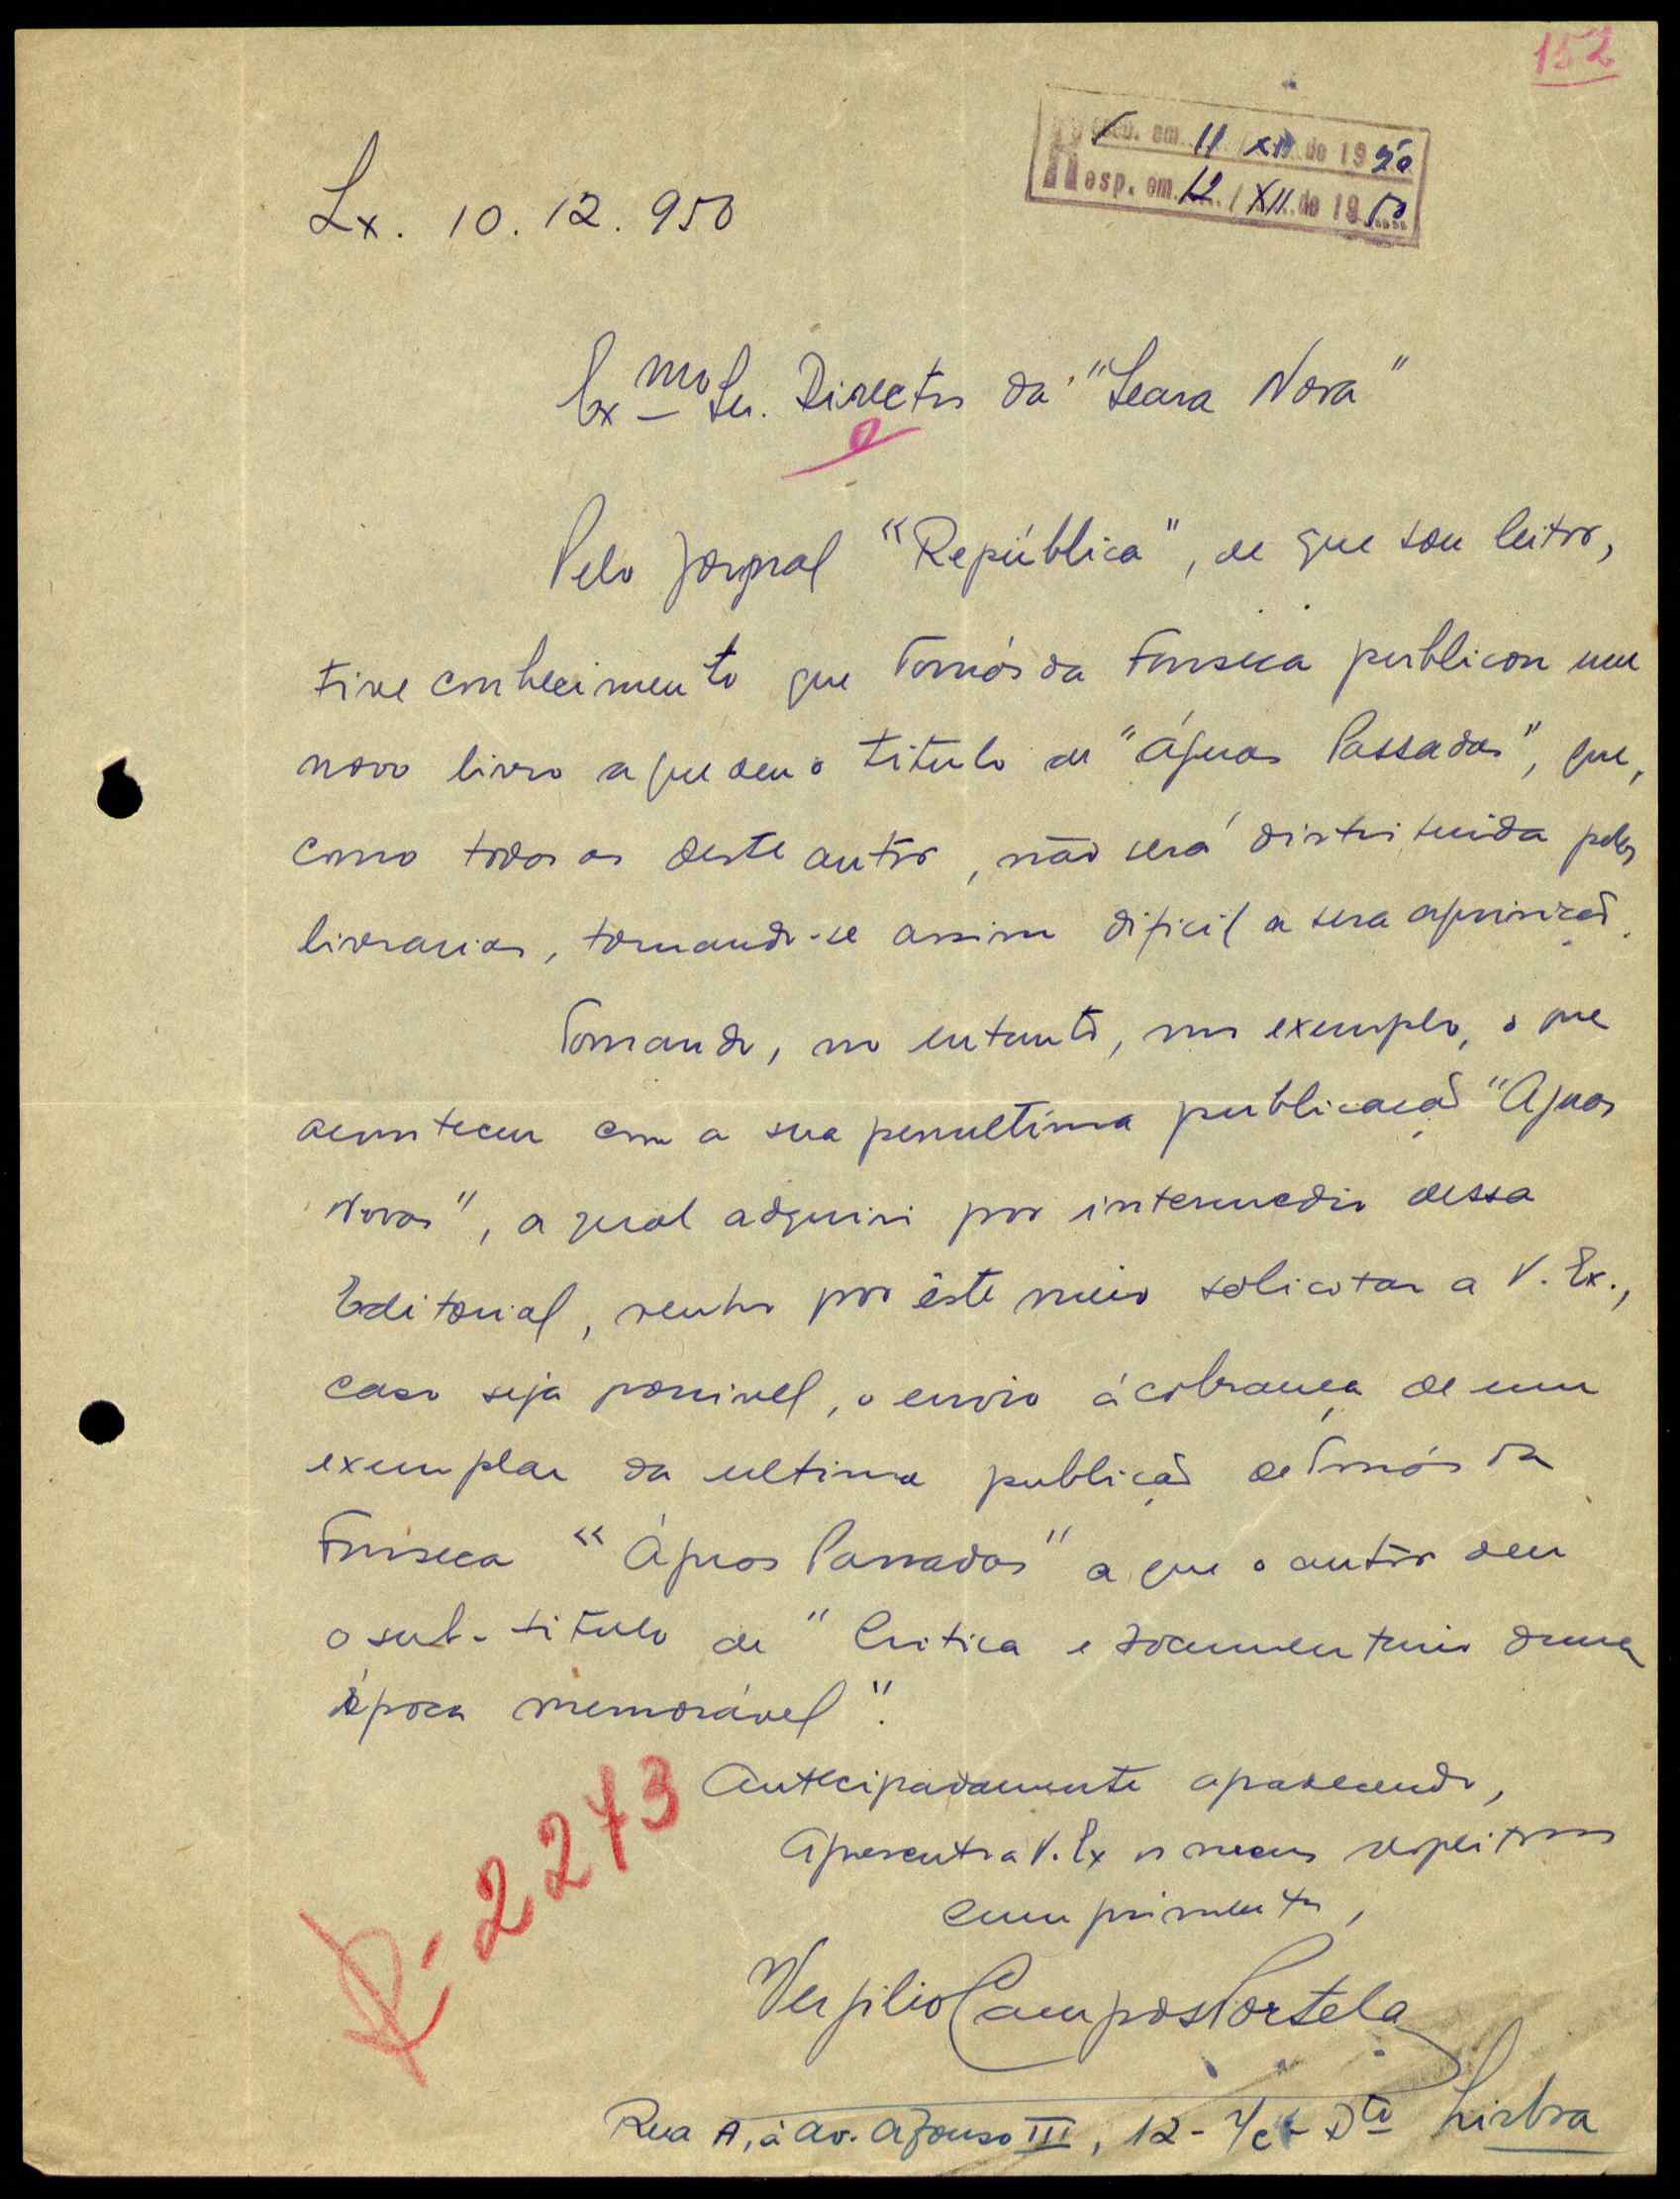 152
Receb. em 11 / XII de 1950
Resp. em 12 / XII de 1950
Lx. 10.12.950
Exmo Sr. Director da "Seara Nova"
Pelo jornal "República", de que sou leitor,
tive conhecimento que Tomás da Fonseca publicou um
novo livro a que deu o titulo de "Águas Passadas", que,
como todos os deste autor, não será distribuida pelas
livrarias, tornando-se assim dificil a sua aquisição.
Tomando, no entanto, por exemplo, o que
aconteceu com a sua penultima publicação "Aguas
Novas", a qual adquiri por intermedio dessa
Editorial, venho por êste meio solicitar a V. Ex.,
caso seja possivel, o envio á cobrança de um
exemplar da ultima publicação de Tomás da
Fonseca "Águas Passadas" a que o autor deu
o sub-titulo de "Critica e documentario duma
época memorável".
Antecipadamente agradecendo,
apresento a V. Ex os meus respeitosos
cumprimentos,
Vergilio Campos Portela
Rua A, à Av. Afonso III, 12 - r/c - Dto Lisboa
R-2273